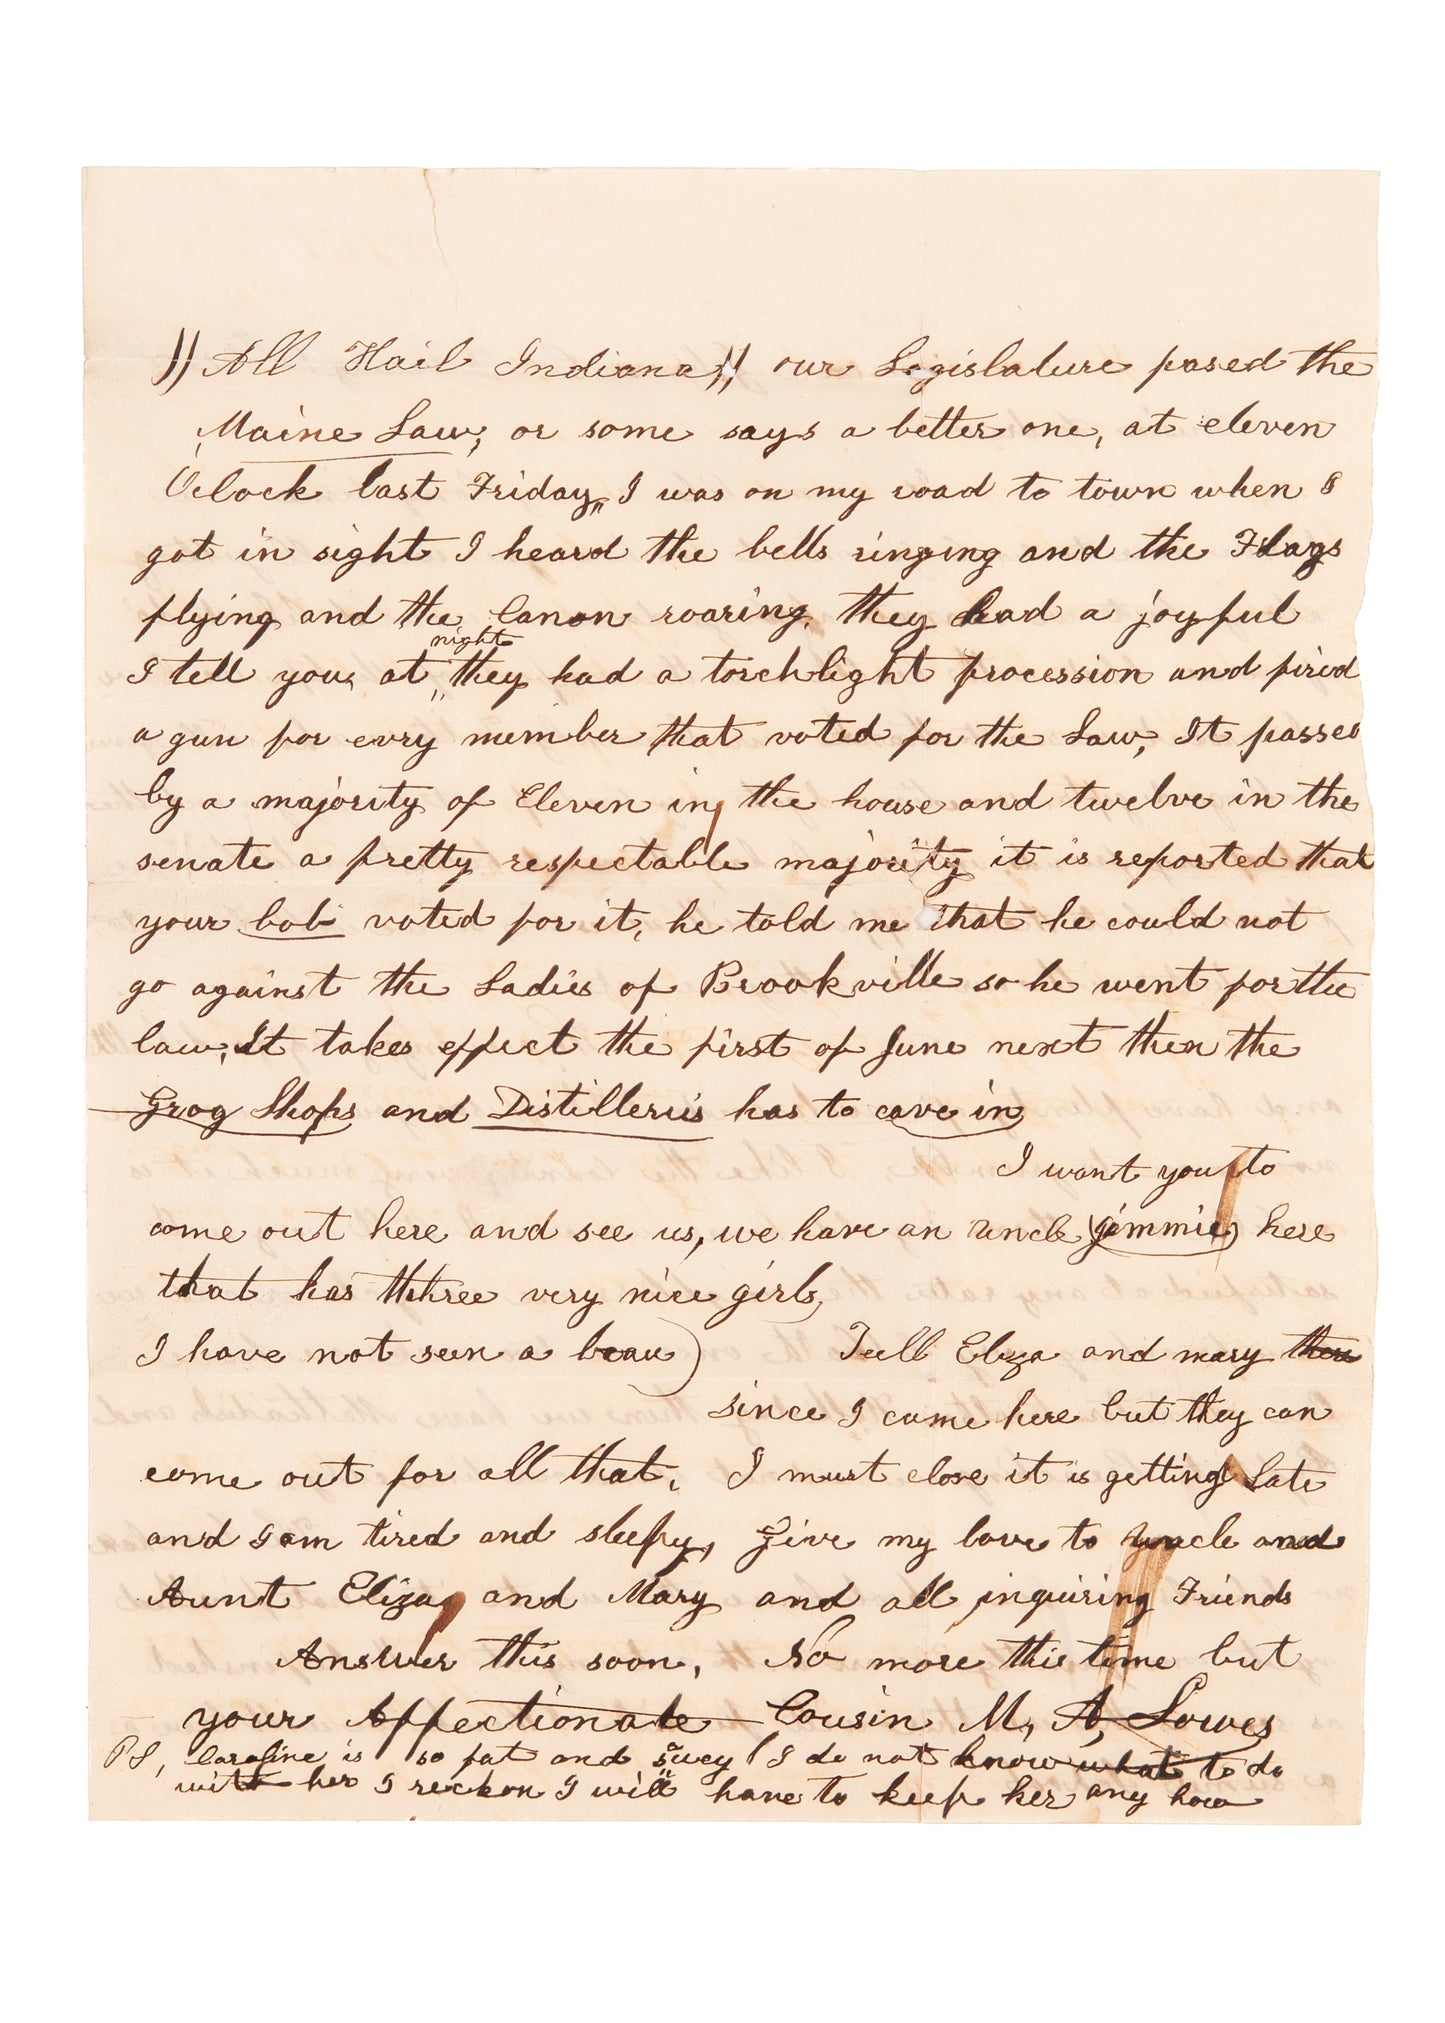 "All Hail Indiana" our Legislature pased the
Maine Law, or some says a better one, at eleven
Oclock last Friday, I was on my road to town when I
got in sight I heard the bells ringing and the Flags
flying and the Canon roaring, they had a joyful
night
I tell you, at they had a torchlight procession and fired
a gun for evry member that voted for the Law, It passed
by a majority of Eleven in the house and twelve in the
senate a pretty respectable majority it is reported that
your bob voted for it, he told me that he could not
go against the Ladies of Brookville so he went for the
law, It takes effect the first of June next then the
Grog Shops and Distilleries has to cave in
I want you to
come out here and see us, we have an Uncle (Jimmie) here
that has ththree very nice girls,
I have not seen a beau) Tell Eliza and mary
since I came here but they can
come out for all that, I must close it is getting Late
and I am tired and sleepy, Give my love to Uncle and
Aunt Eliza, and Mary and all inquiring Friends
Answer this soon, No more this time but
your Affectionate Cousin M, A, Lowes
PS, Caroline is so fat and I do not know what to do
with her I reckon I will have to keep her any how